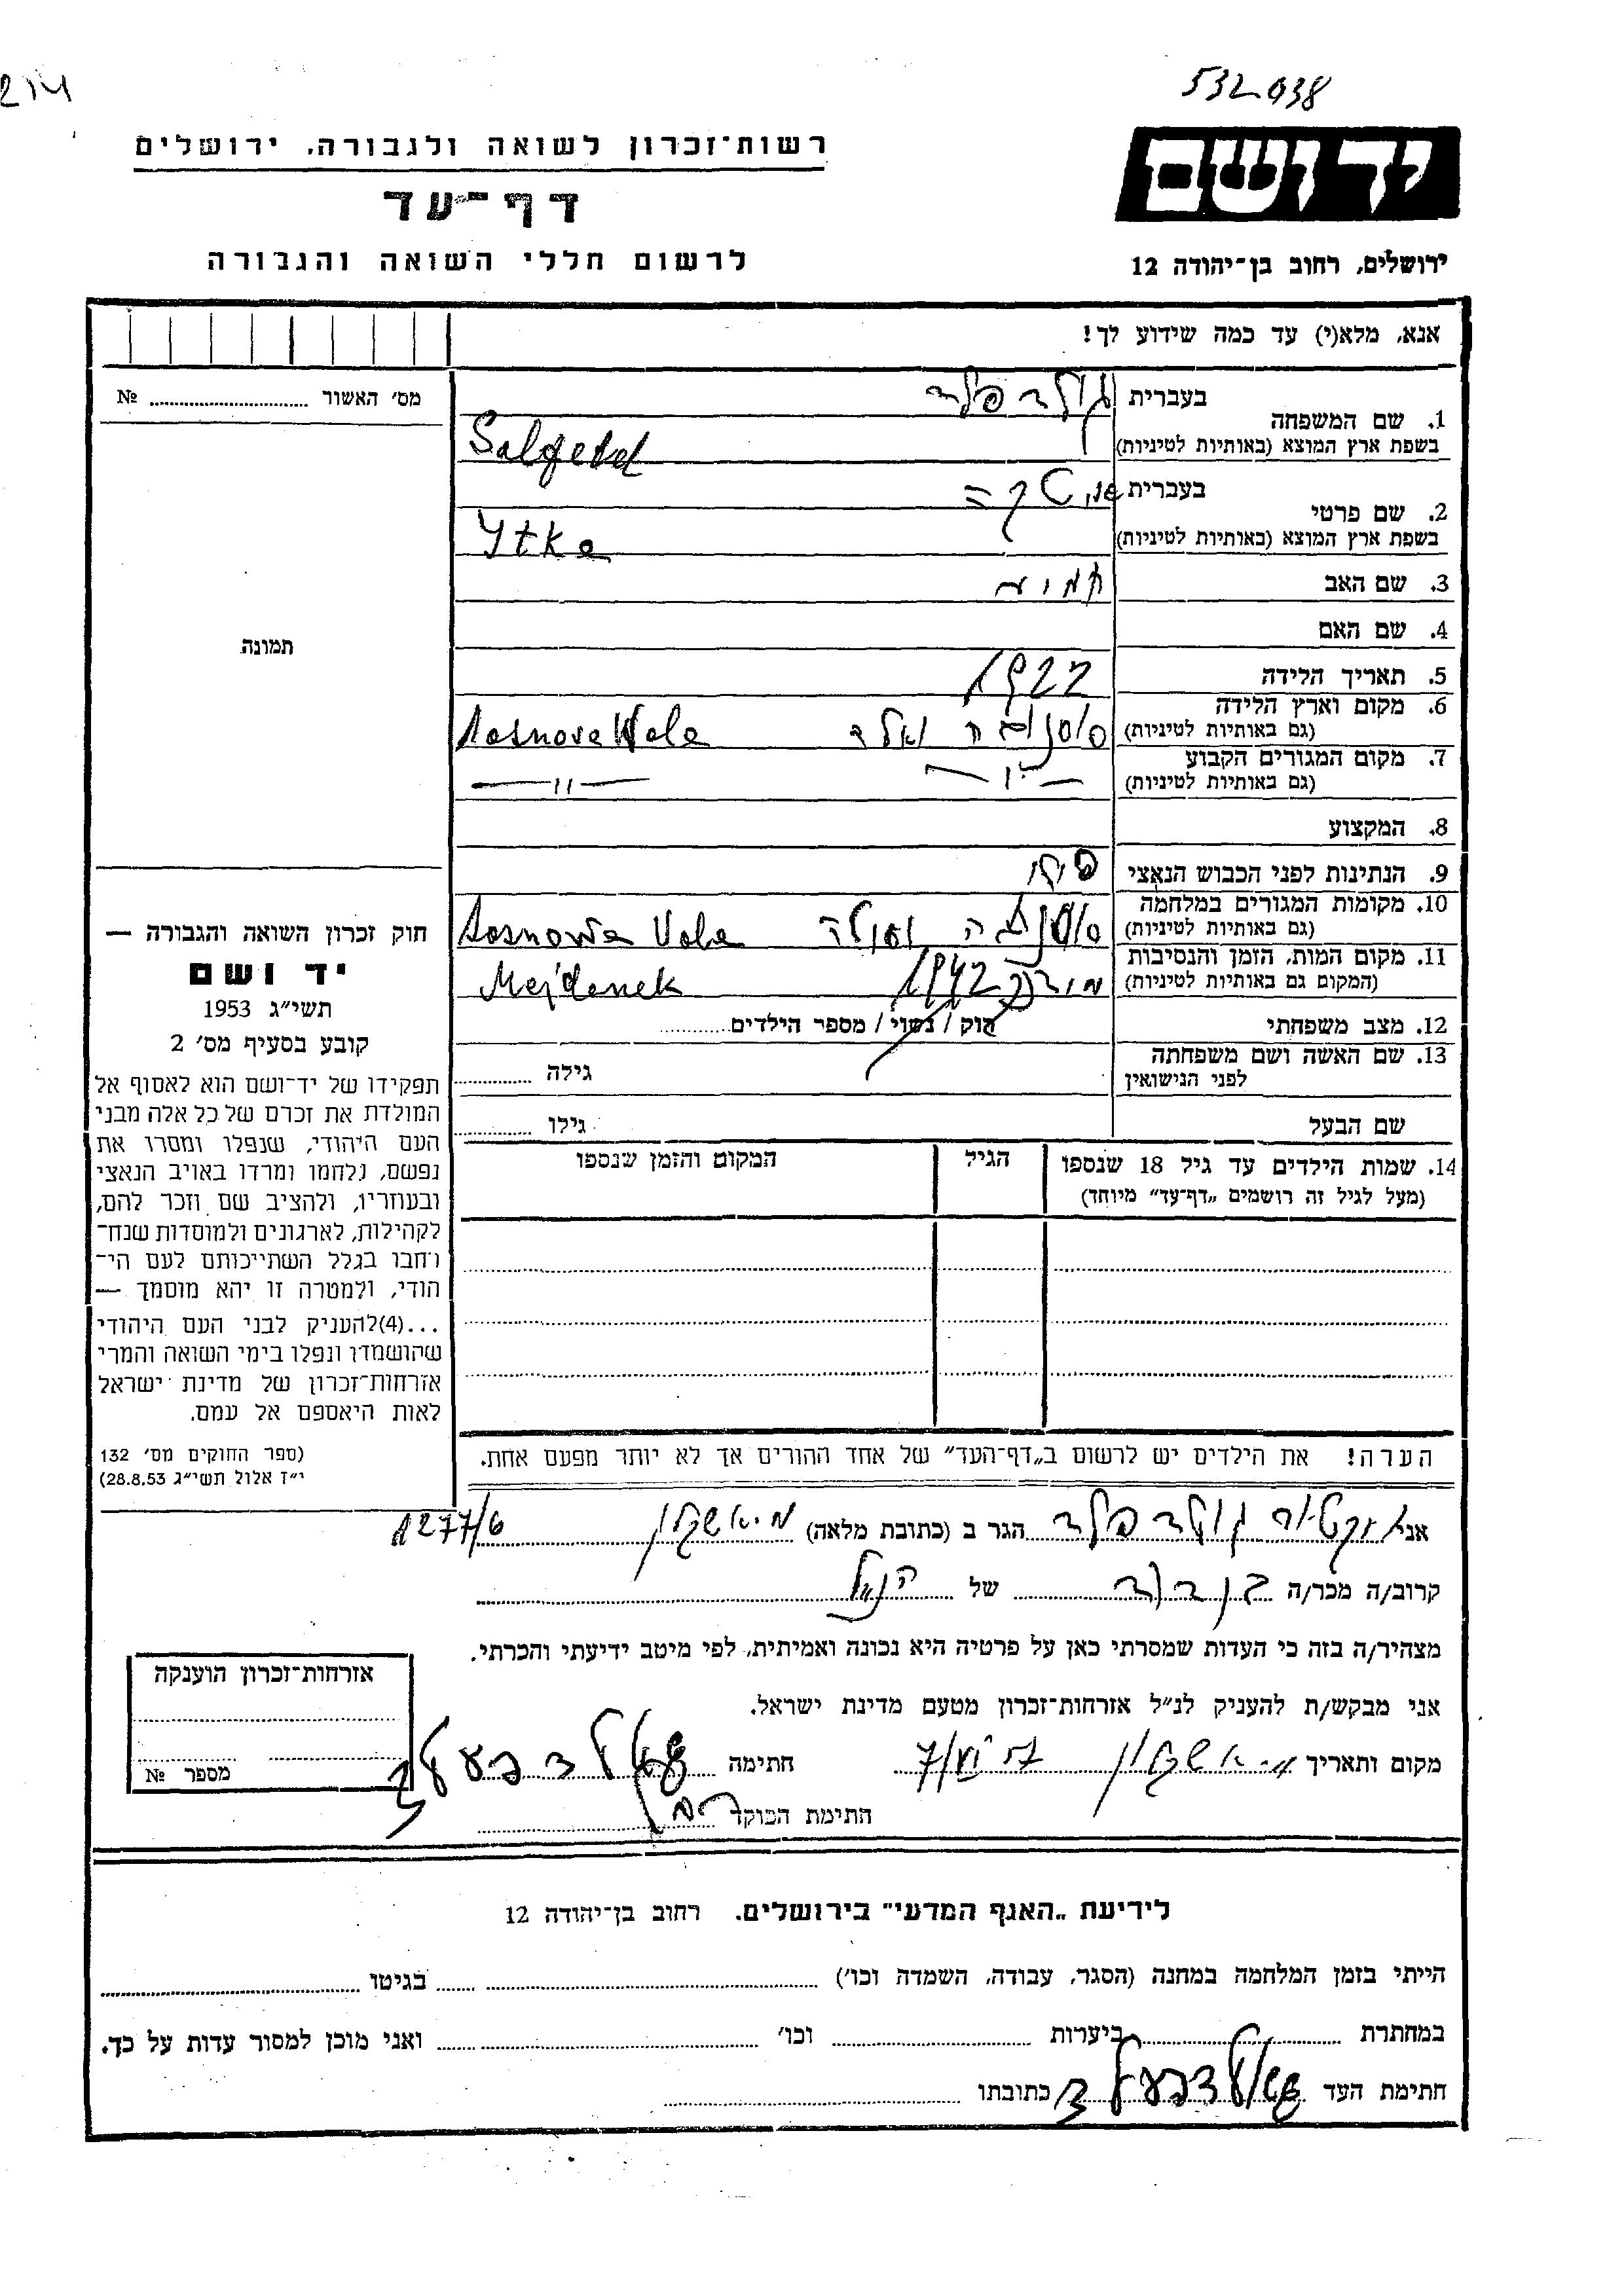 532038
214
יד ושם
רשות־זכרון לשואה ולגבורה, ירושלים
דף־עד
לרשום חללי השואה והגבורה
ירושלים, רחוב בן־יהודה 12
אנא, מלא(י) עד כמה שידוע לך!
מס׳ האשור № ..........
1. שם המשפחה
בעברית גולדפלד
בשפת ארץ המוצא (באותיות לטיניות)
2. שם פרטי
בעברית
בשפת ארץ המוצא (באותיות לטיניות) Ytka
3. שם האב
4. שם האם
תמונה
5. תאריך הלידה 1922
6. מקום וארץ הלידה
(גם באותיות לטיניות) Sosnova Wola
7. מקום המגורים הקבוע
(גם באותיות לטיניות) —״— —״—
8. המקצוע
9. הנתינות לפני הכבוש הנאצי
10. מקומות המגורים במלחמה
(גם באותיות לטיניות) Sosnowa Vola
11. מקום המות, הזמן והנסיבות
(המקום גם באותיות לטיניות) 1942 Mejdanek
12. מצב משפחתי רווק / נשוי / מספר הילדים..........
13. שם האשה ושם משפחתה
לפני הנישואין גילה ..........
שם הבעל גילו ..........
14. שמות הילדים עד גיל 18 שנספו הגיל המקום והזמן שנספו
(מעל לגיל זה רושמים „דף־עד״ מיוחד)
חוק זכרון השואה והגבורה —
יד ושם
תשי״ג 1953
קובע בסעיף מס׳ 2
תפקידו של יד־ושם הוא לאסוף אל
המולדת את זכרם של כל אלה מבני
העם היהודי, שנפלו ומסרו את
נפשם, נלחמו ומרדו באויב הנאצי
ובעוזריו, ולהציב שם וזכר להם,
לקהילות, לארגונים ולמוסדות שנח־
רבו בגלל השתייכותם לעם הי־
הודי, ולמטרה זו יהא מוסמך —
...(4)להעניק לבני העם היהודי
שהושמדו ונפלו בימי השואה והמרי
אזרחות־זכרון של מדינת ישראל
לאות היאספם אל עמם.
(ספר החוקים מס׳ 132
י״ז אלול תשי״ג 28.8.53)
הערה! את הילדים יש לרשום ב„דף־העד״ של אחד ההורים אך לא יותר מפעם אחת.
אני גולדפלד הגר ב (כתובת מלאה) אשקלון 1277/6
קרוב/ה מכר/ה בן דוד של הנ״ל
מצהיר/ה בזה כי העדות שמסרתי כאן על פרטיה היא נכונה ואמיתית, לפי מיטב ידיעתי והכרתי.
אני מבקש/ת להעניק לנ״ל אזרחות־זכרון מטעם מדינת ישראל.
מקום ותאריך אשקלון חתימה
חתימת הפוקד
אזרחות־זכרון הוענקה
מספר №
לידיעת „האגף המדעי״ בירושלים. רחוב בן־יהודה 12
הייתי בזמן המלחמה במחנה (הסגר, עבודה, השמדה וכו׳) .......... בגיטו ..........
במחתרת .......... ביערות .......... וכו׳ .......... ואני מוכן למסור עדות על כך.
חתימת העד כתובתו ..........